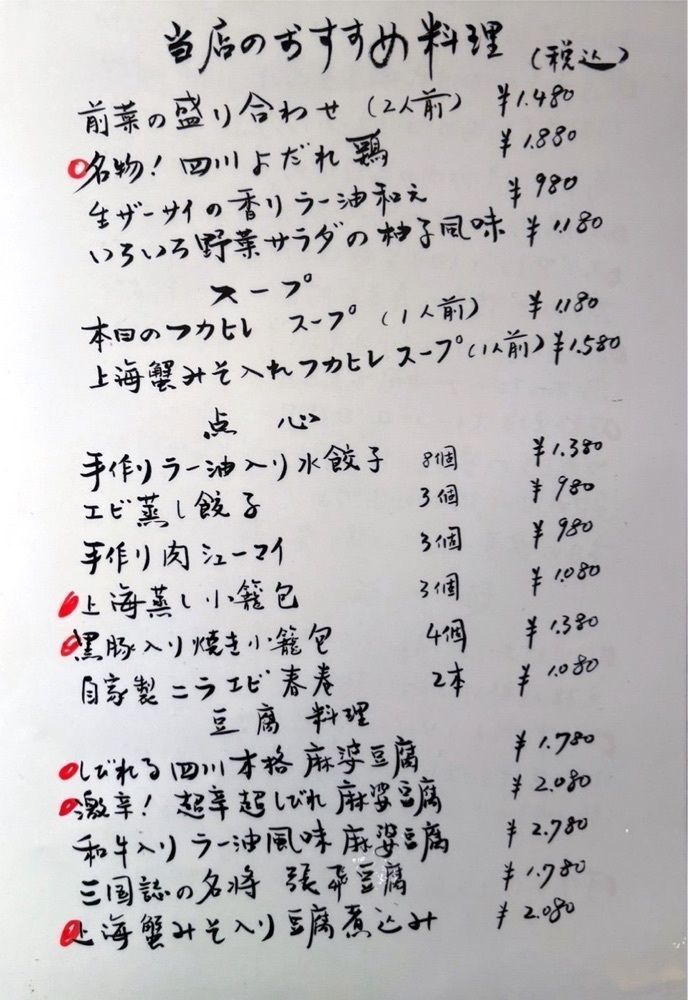 当店のおすすめ料理 (税込)
前菜の盛り合わせ (2人前) ¥1.480
名物! 四川よだれ鶏 ¥1.880
生ザーサイの香りラー油和え ¥980
いろいろ野菜サラダの柚子風味 ¥1.180
スープ
本日のフカヒレ スープ (1人前) ¥1.180
上海蟹みそ入れフカヒレスープ(1人前) ¥1.580
点 心
手作りラー油入り水餃子 8個 ¥1.380
エビ蒸し餃子 3個 ¥980
手作り肉シューマイ 3個 ¥980
上海蒸し小籠包 3個 ¥1.080
黒豚入り焼き小籠包 4個 ¥1.380
自家製ニラエビ春巻 2本 ¥1.080
豆腐 料理
しびれる四川本格麻婆豆腐 ¥1.780
激辛! 超辛超しびれ麻婆豆腐 ¥2.080
和牛入りラー油風味麻婆豆腐 ¥2.780
三国誌の名将 張飛豆腐 ¥1.780
上海蟹みそ入り豆腐煮込み ¥2.080